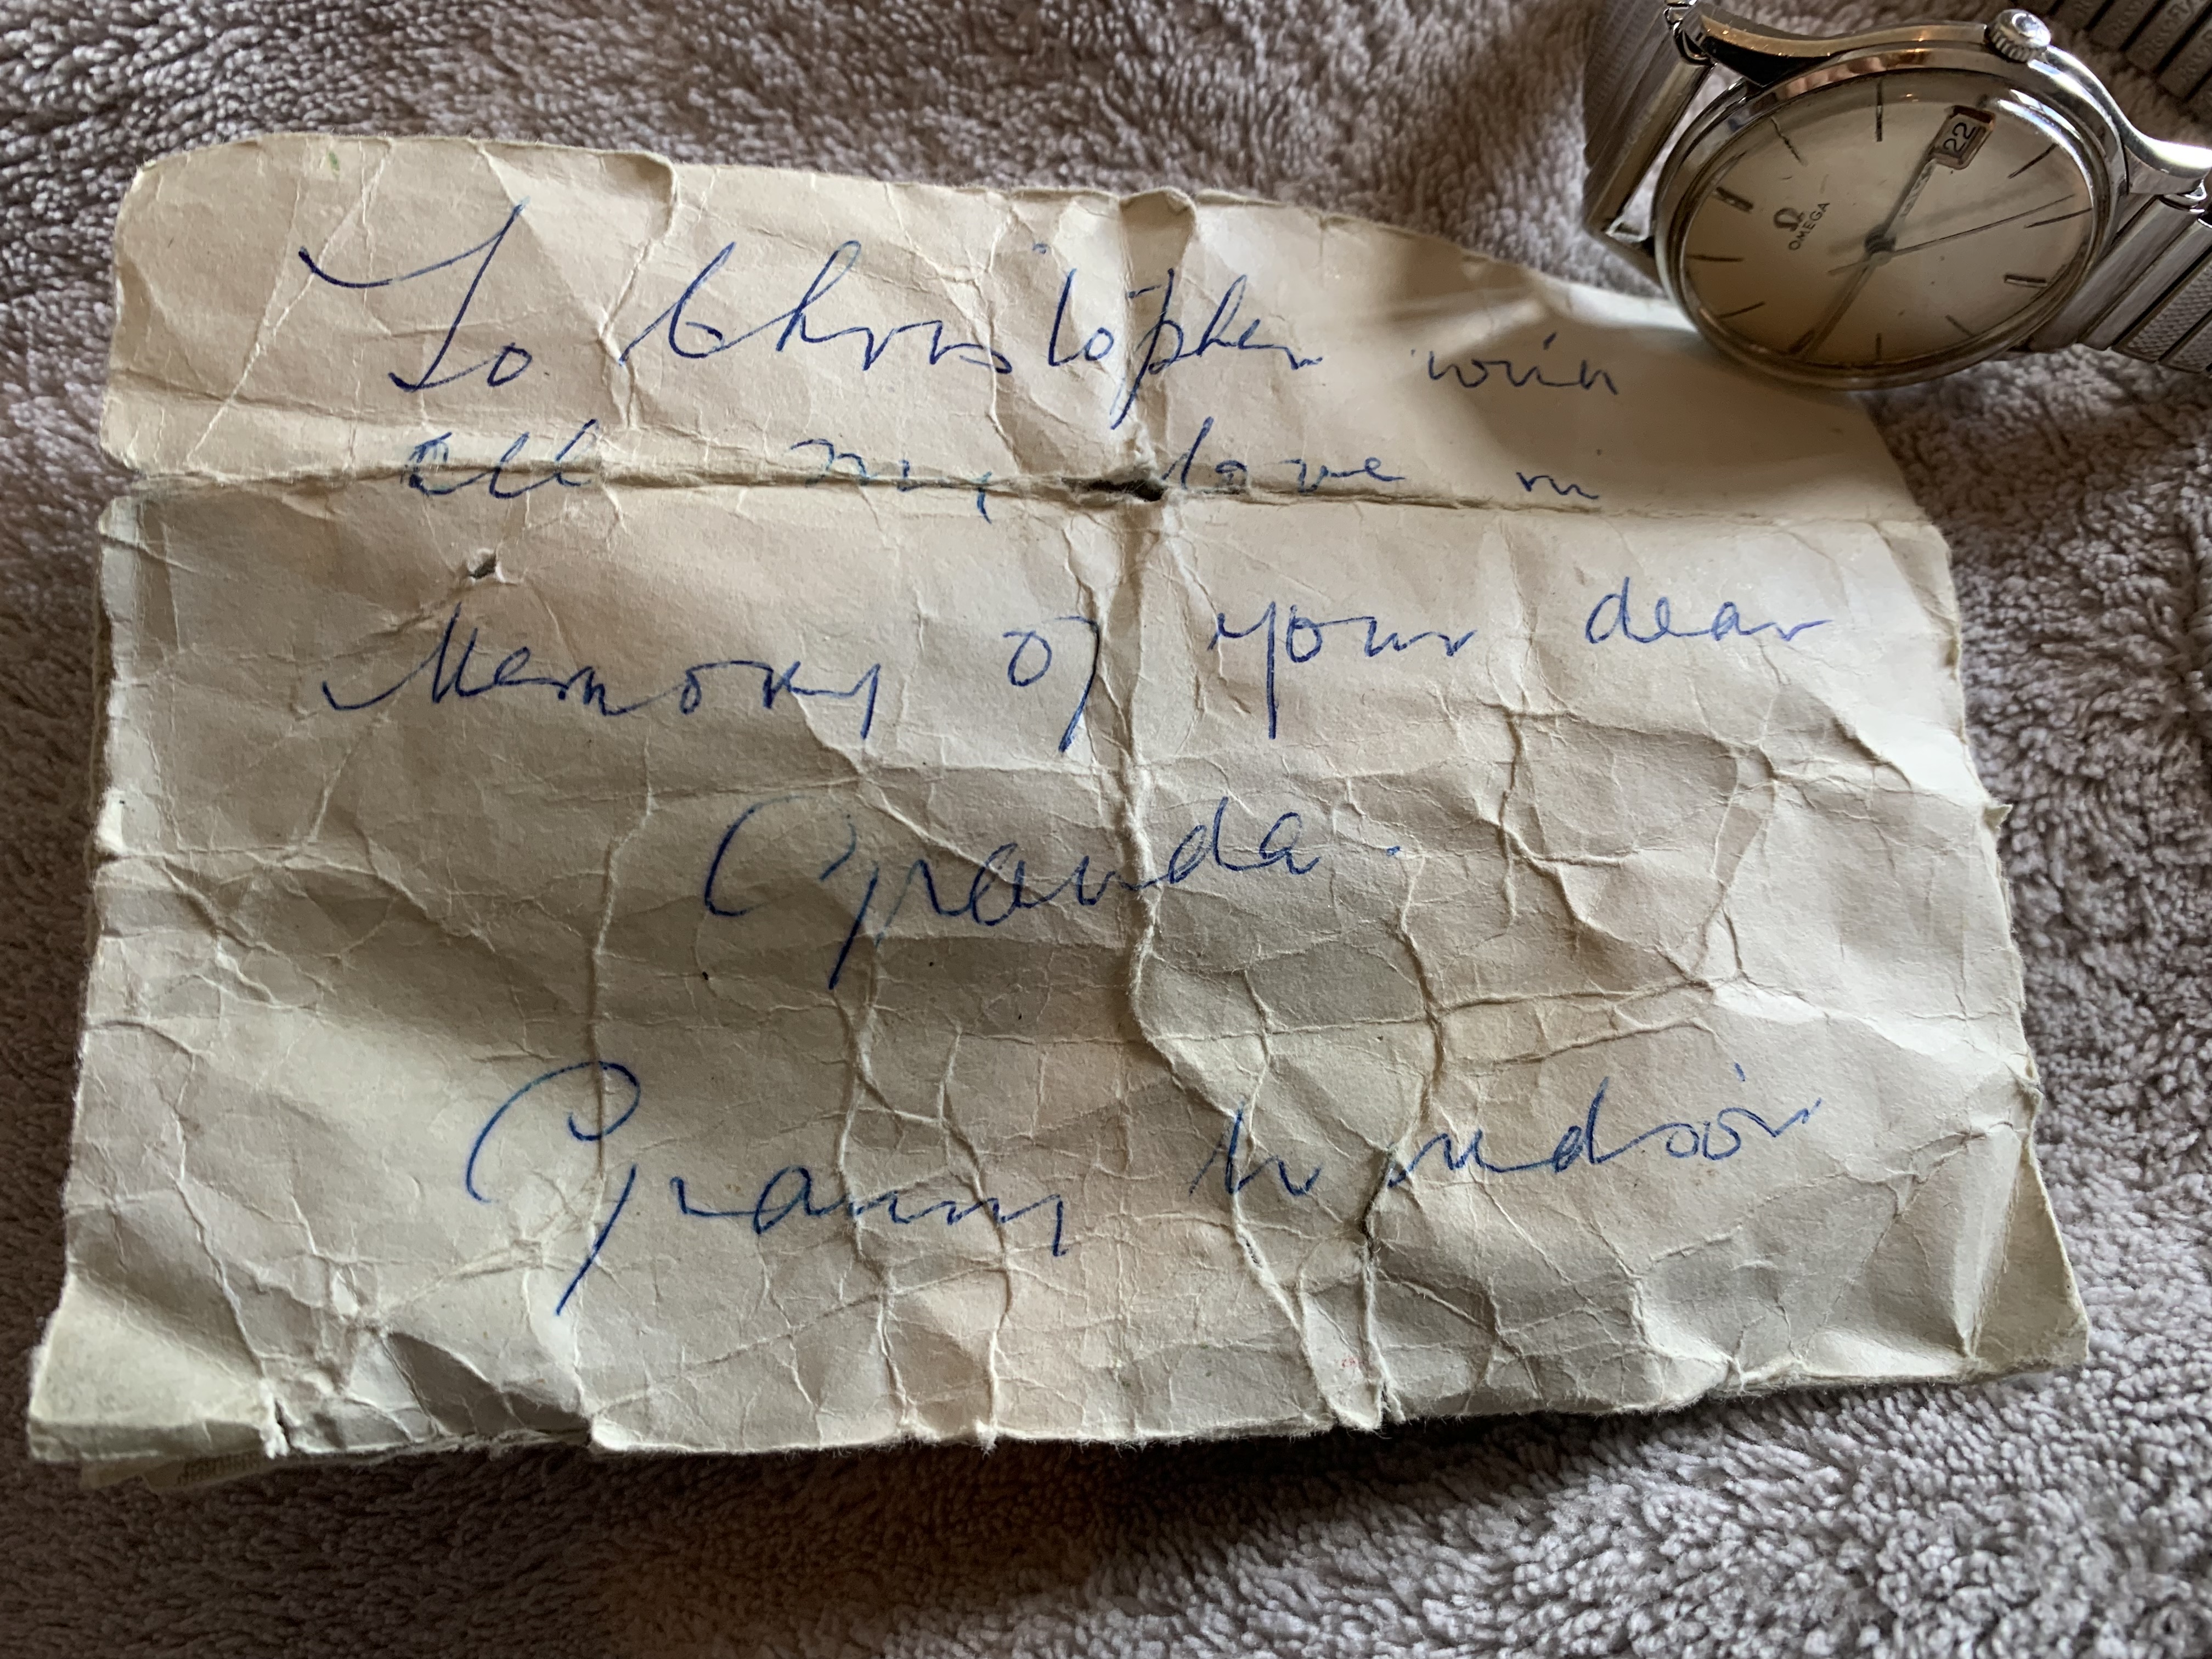 To Christopher with
all my love in
Memory of your dear
Granda.
Granny Windsor
22
Ω
OMEGA